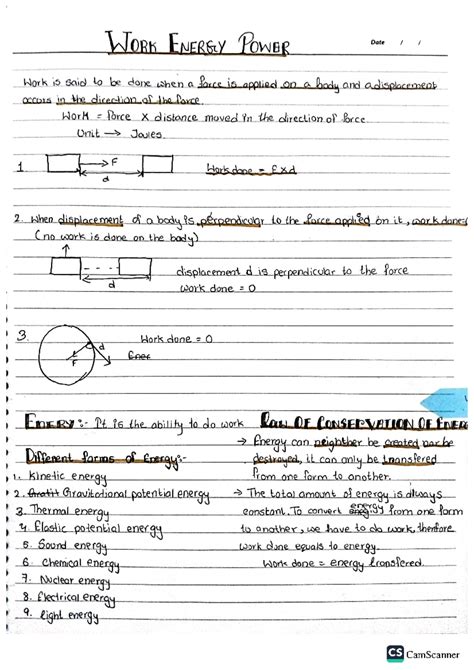 WORK ENERGY POWER
Date / /
Work is said to be done when a force is applied on a body and a displacement
occurs in the direction of the force.
Work = force x distance moved in the direction of force.
Unit → Joules.
1
F
d
Work done = F x d
2. When displacement of a body is perpendicular to the force applied on it, work done
(no work is done on the body)
d
displacement d is perpendicular to the force
work done = 0
3.
d
F
Work done = 0
Ener
ENERY:- It is the ability to do work
Different forms of Energy:-
1. Kinetic energy
2. Gravit Gravitational potential energy
3. Thermal energy
4. Elastic potential energy
5. Sound energy
6. Chemical energy
7. Nuclear energy
8. Electrical energy
9. light energy
LAW OF CONSERVATION OF ENERG
→ Energy can neighther be created nor be
destroyed, it can only be transfered
from one form to another.
→ The total amount of energy is always
constant. To convert energy from one form
to another, we have to do work, therefore
work done equals to energy.
Work done = energy transfered.
CS CamScanner